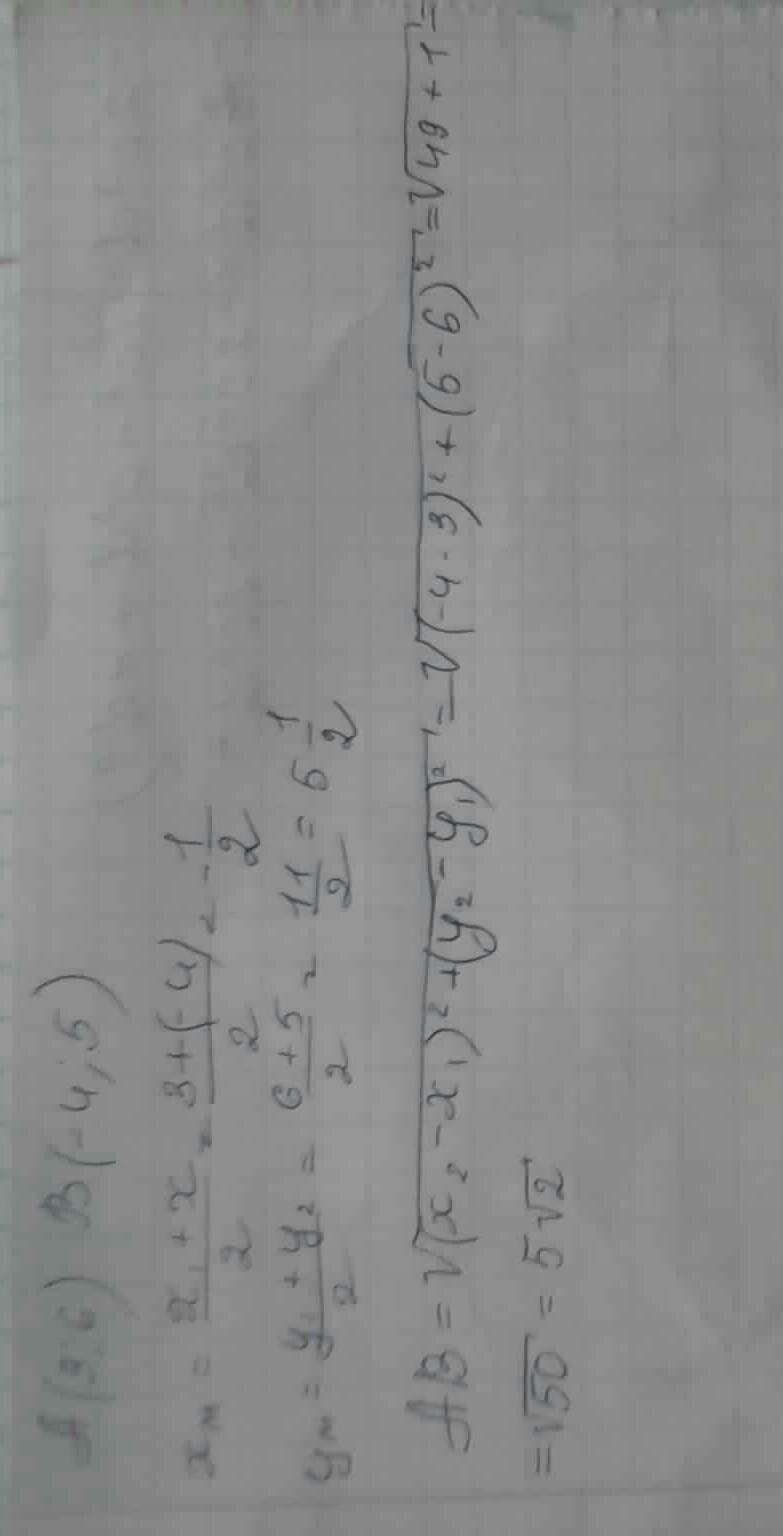 A(3;6) B(-4;5)
xₘ = (x₁ + x)/2 = (3+(-4))/2 = -1/2
yₘ = (y₁ + y₂)/2 = (6+5)/2 = 11/2 = 5 1/2
AB = √((x₂ - x₁)² + (y₂ - y₁)²) = √((-4-3)² + (5-6)²) = √(49+1) =
= √50 = 5√2